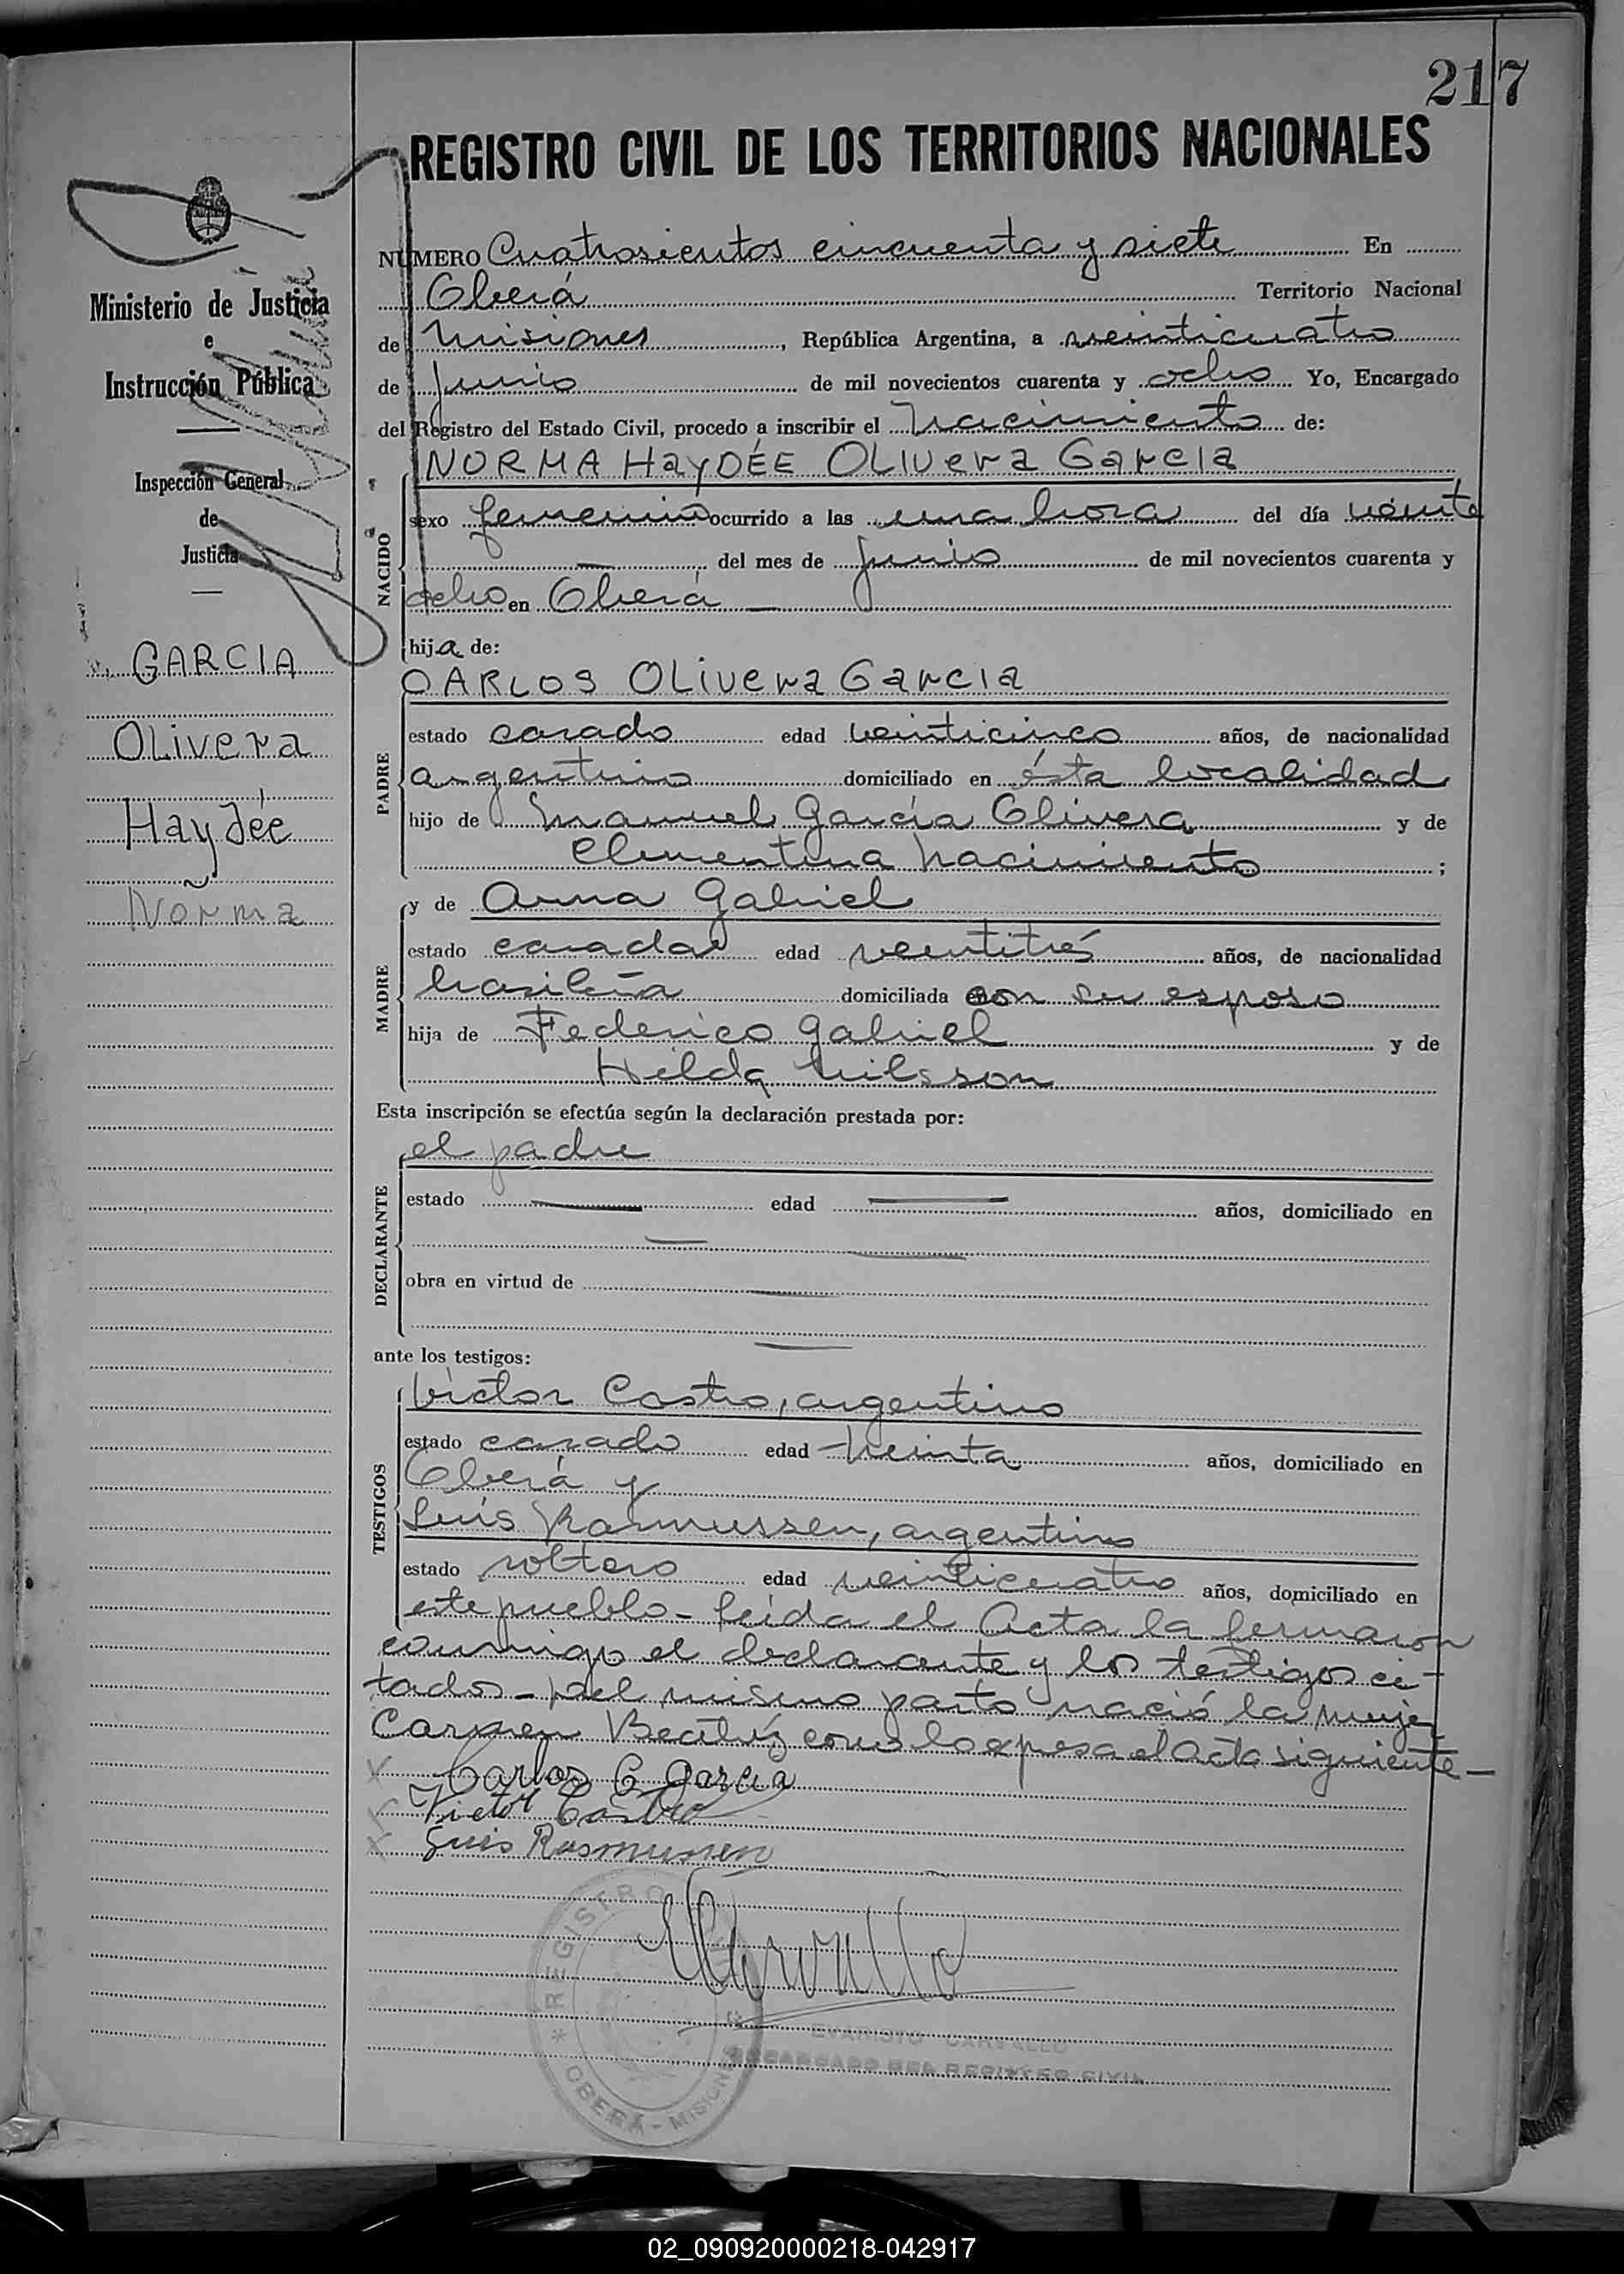 217
REGISTRO CIVIL DE LOS TERRITORIOS NACIONALES
Ministerio de Justicia
e
Instrucción Pública
Inspección General
de
Justicia
GARCIA
OLivera
Haydée
Norma
NUMERO Cuatrosientos cincuenta y siete En
Oberá Territorio Nacional
de Misiones, República Argentina, a veinticuatro
de junio de mil novecientos cuarenta y ocho Yo, Encargado
del Registro del Estado Civil, procedo a inscribir el nacimiento de:
NORMA HayDÉE OLIvera García
NACIDO
sexo femenino ocurrido a las una hora del día veinte
— del mes de junio de mil novecientos cuarenta y
ocho en Oberá —
hija de:
CARLOS OLivera Garcia
PADRE
estado casado edad veinticinco años, de nacionalidad
argentino domiciliado en ésta localidad
hijo de Manuel García Olivera y de
Clementina Nacimiento ;
MADRE
y de Anna Gabriel
estado casada edad veintitrés años, de nacionalidad
brasileña domiciliada con su esposo
hija de Federico Gabriel y de
Hilda Nilsson
Esta inscripción se efectúa según la declaración prestada por:
el padre
DECLARANTE
estado — edad — años, domiciliado en
obra en virtud de —
ante los testigos:
TESTIGOS
Victor Castro, argentino
estado casado edad treinta años, domiciliado en
Oberá y
Luis Rasmussen, argentino
estado soltero edad veinticuatro años, domiciliado en
este pueblo - leída el Acta la firmaron
conmigo el declarante y los testigos ci-
tados - Del mismo parto nació la mujer
Carmen Beatríz como lo expresa el Acta siguiente -
Carlos O Garcia
Victor Castro
Luis Rasmussen
ECarvallo
REGISTRO
OBERÁ - MISIONES
EVARISTO CARVALLO
ENCARGADO DEL REGISTRO CIVIL
02_090920000218-042917